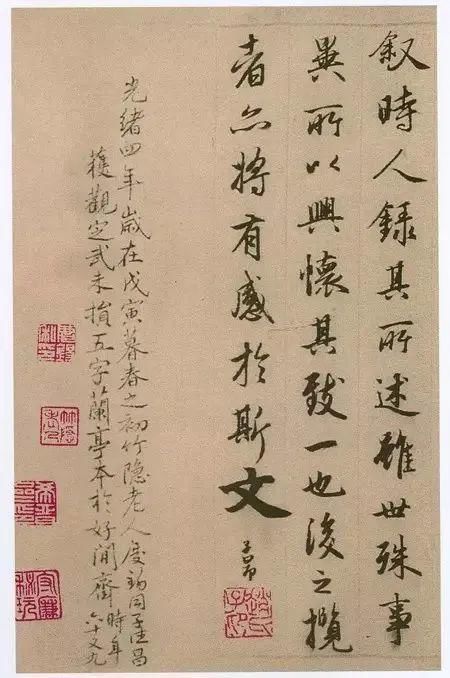 叙時人錄其所述雖世殊事
異所以興懷其致一也後之攬
者亦將有感於斯文
子昂
趙氏子昂
光緒四年歲在戊寅暮春之初竹隐老人
獲觀定武未損五字蘭亭本於好閒齋時年
六十又九